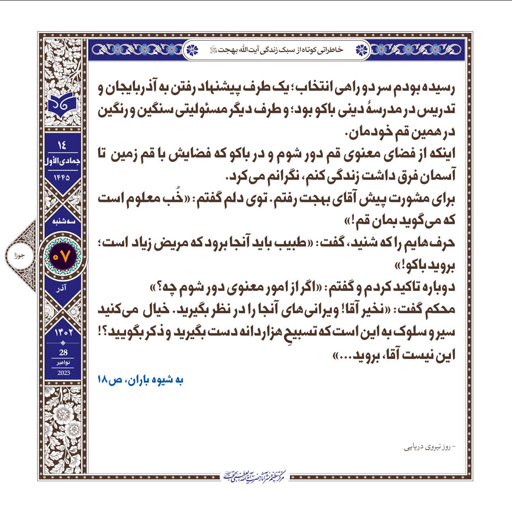 خاطراتی کوتاه از سبک زندگی آیت‌الله بهجت
رسیده بودم سر دو راهی انتخاب؛ یک طرف پیشنهاد رفتن به آذربایجان و
تدریس در مدرسهٔ دینی باکو بود؛ و طرف دیگر مسئولیتی سنگین و رنگین
در همین قم خودمان.
اینکه از فضای معنوی قم دور شوم و در باکو که فضایش با قم زمین تا
آسمان فرق داشت زندگی کنم، نگرانم می‌کرد.
برای مشورت پیش آقای بهجت رفتم. توی دلم گفتم: «خُب معلوم است
که می‌گوید بمان قم!»
حرف‌هایم را که شنید، گفت: «طبیب باید آنجا برود که مریض زیاد است؛
بروید باکو!»
دوباره تاکید کردم و گفتم: «اگر از امور معنوی دور شوم چه؟»
محکم گفت: «نخیر آقا! ویرانی‌های آنجا را در نظر بگیرید. خیال می‌کنید
سیر و سلوک به این است که تسبیح هزاردانه دست بگیرید و ذکر بگویید؟!
این نیست آقا، بروید...»
به شیوه باران، ص۱۸
- روز نیروی دریایی
١٤
جمادی‌الأول
١٤٤٥
سه‌شنبه
۰۷
آذر
۱۴۰۲
28
نوامبر
2023
جوزا